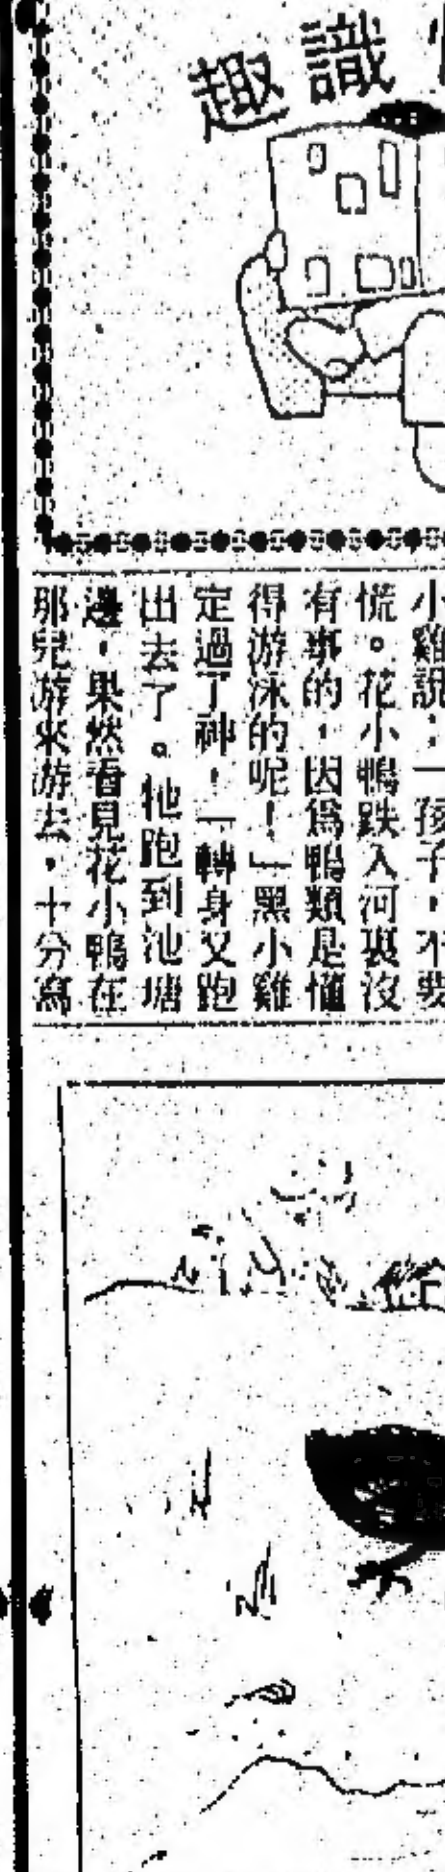 識趣
小雞說：「孩子，不要
慌。花小鴨跌入河裏沒
有事的，因爲鴨類是懂
得游泳的呢！」黑小雞
定過了神，「轉身又跑
出去了。牠跑到池塘
邊，果然看見花小鴨在
那兒游來游去，十分寫